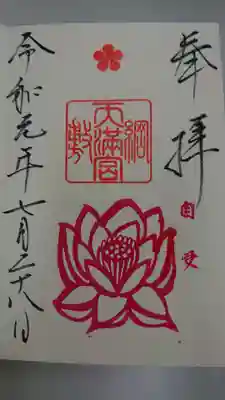 奉拝
自受
綱敷
天満宮
令和元年七月二十八日